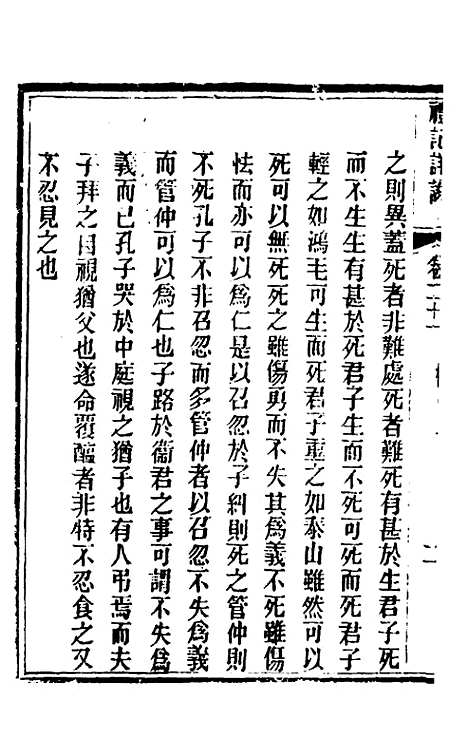 禮記詳說
之則異蓋死者非難處死者難死有甚於生君子死
而不生生有甚於死君子生而不死可死而死君子
輕之如鴻毛可生而死君子重之如泰山雖然可以
死可以無死死之雖傷勇而不失其為義不死雖傷
怯而亦可以為仁是以召忽於子糾則死之管仲則
不死孔子不非召忽而多管仲者以召忽不失為義
而管仲可以為仁也子路於衞君之事可謂不失為
義而已孔子哭於中庭視之猶子也有人弔焉而夫
子拜之自視猶父也遂命覆醢者非特不忍食之又
不忍見之也